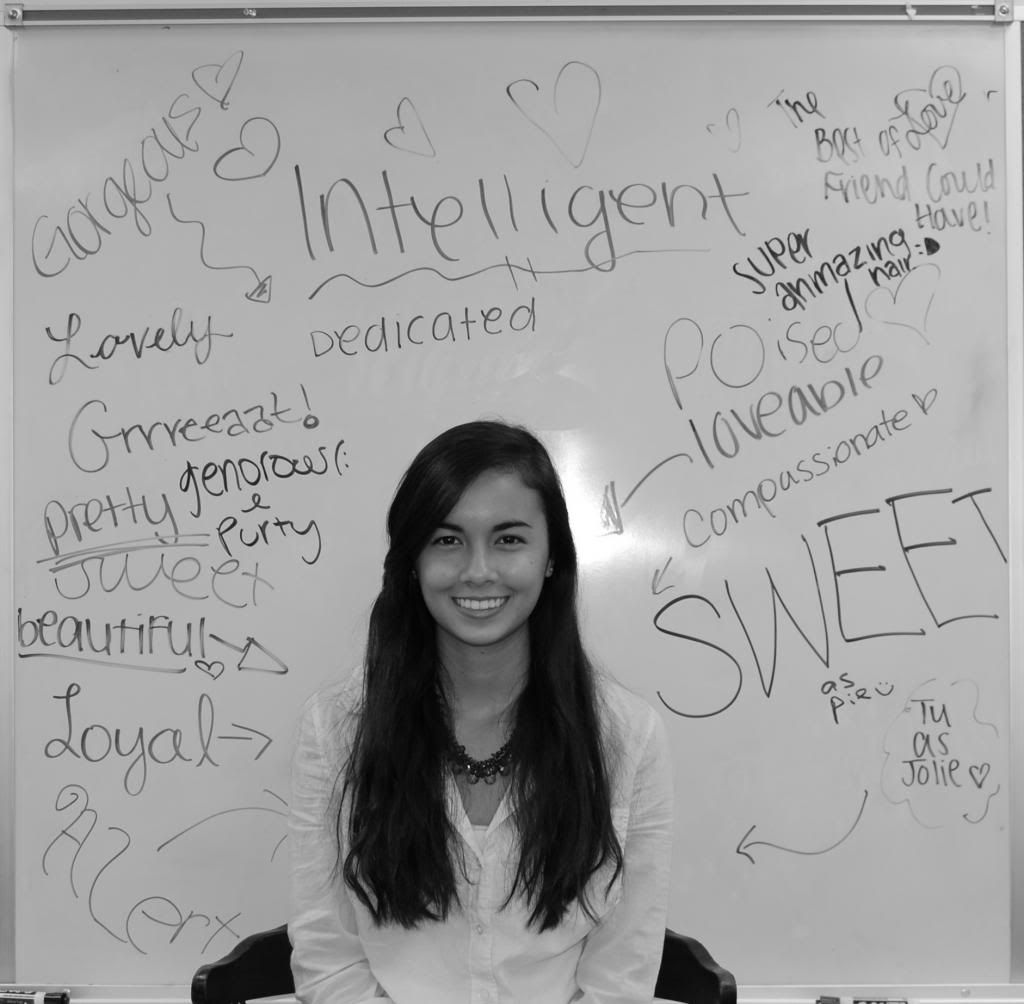 Gorgeous
Intelligent
The
Best of Love
Friend Could
Have!
super
anmazing
hair :D
Lovely
Dedicated
Poised
loveable
compassionate
Grrreeaat!
genorous (:
&
purty
pretty
sweet
SWEET
as
pie
beautiful
Loyal
Tu
as
Jolie